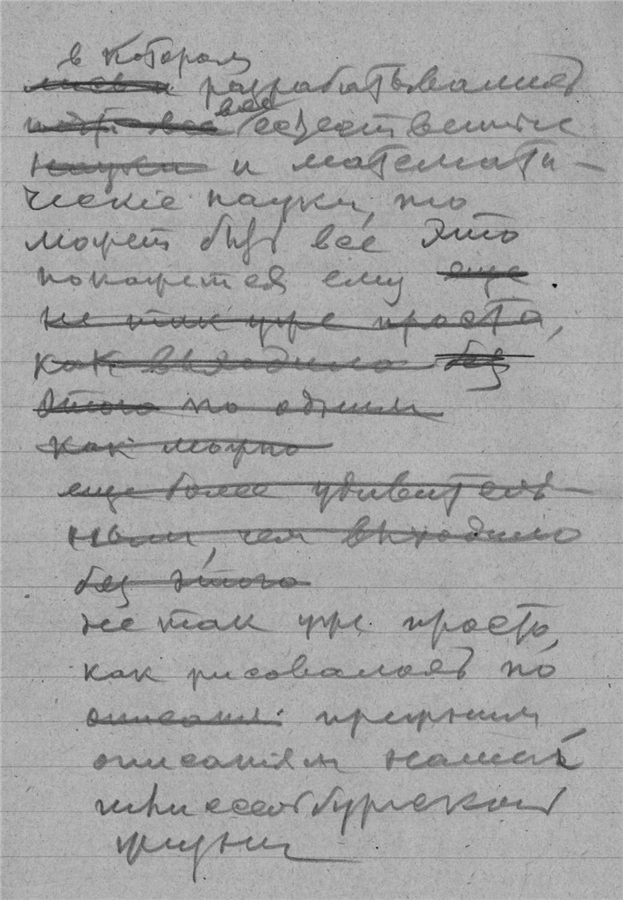 в котором
разрабатывались
все естественные
науки и математи-
ческіе науки, то
может быть все это
покажется ему еще
не так уже просто,
как выходило без
этого по одним
как можно
еще более удивитель-
ным, чем выходило
без этого
не так уже просто,
как рисовалось по
описані прежним
описаніям нашей
шлиссельбургской
жизни